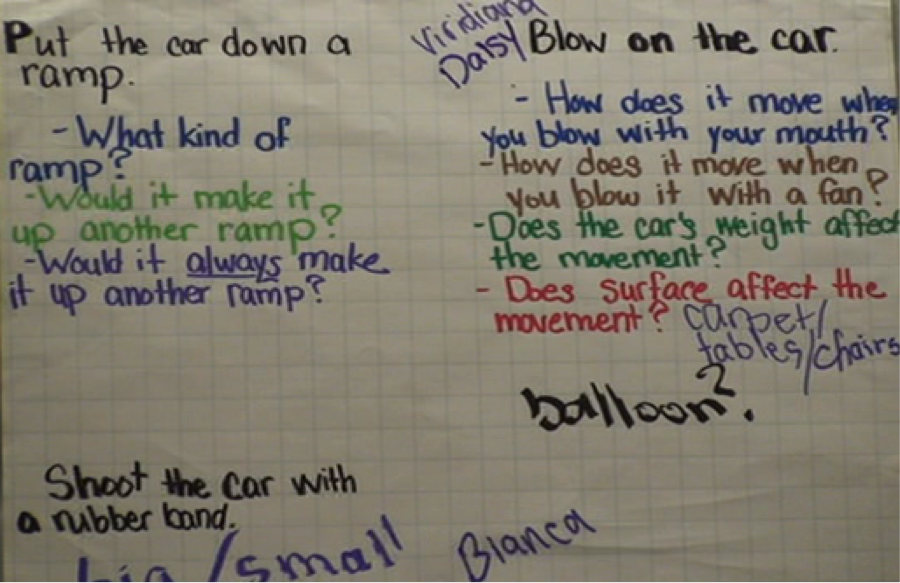 Put the car down a
ramp.
- What kind of
ramp?
- Would it make it
up another ramp?
- Would it always make
it up another ramp?
Viridiana
Daisy
Blow on the car.
- How does it move when
you blow with your mouth?
- How does it move when
you blow it with a fan?
- Does the car's weight affect
the movement?
- Does surface affect the
movement? carpet/
tables/chairs
balloon?
Shoot the car with
a rubber band.
big/small
Bianca